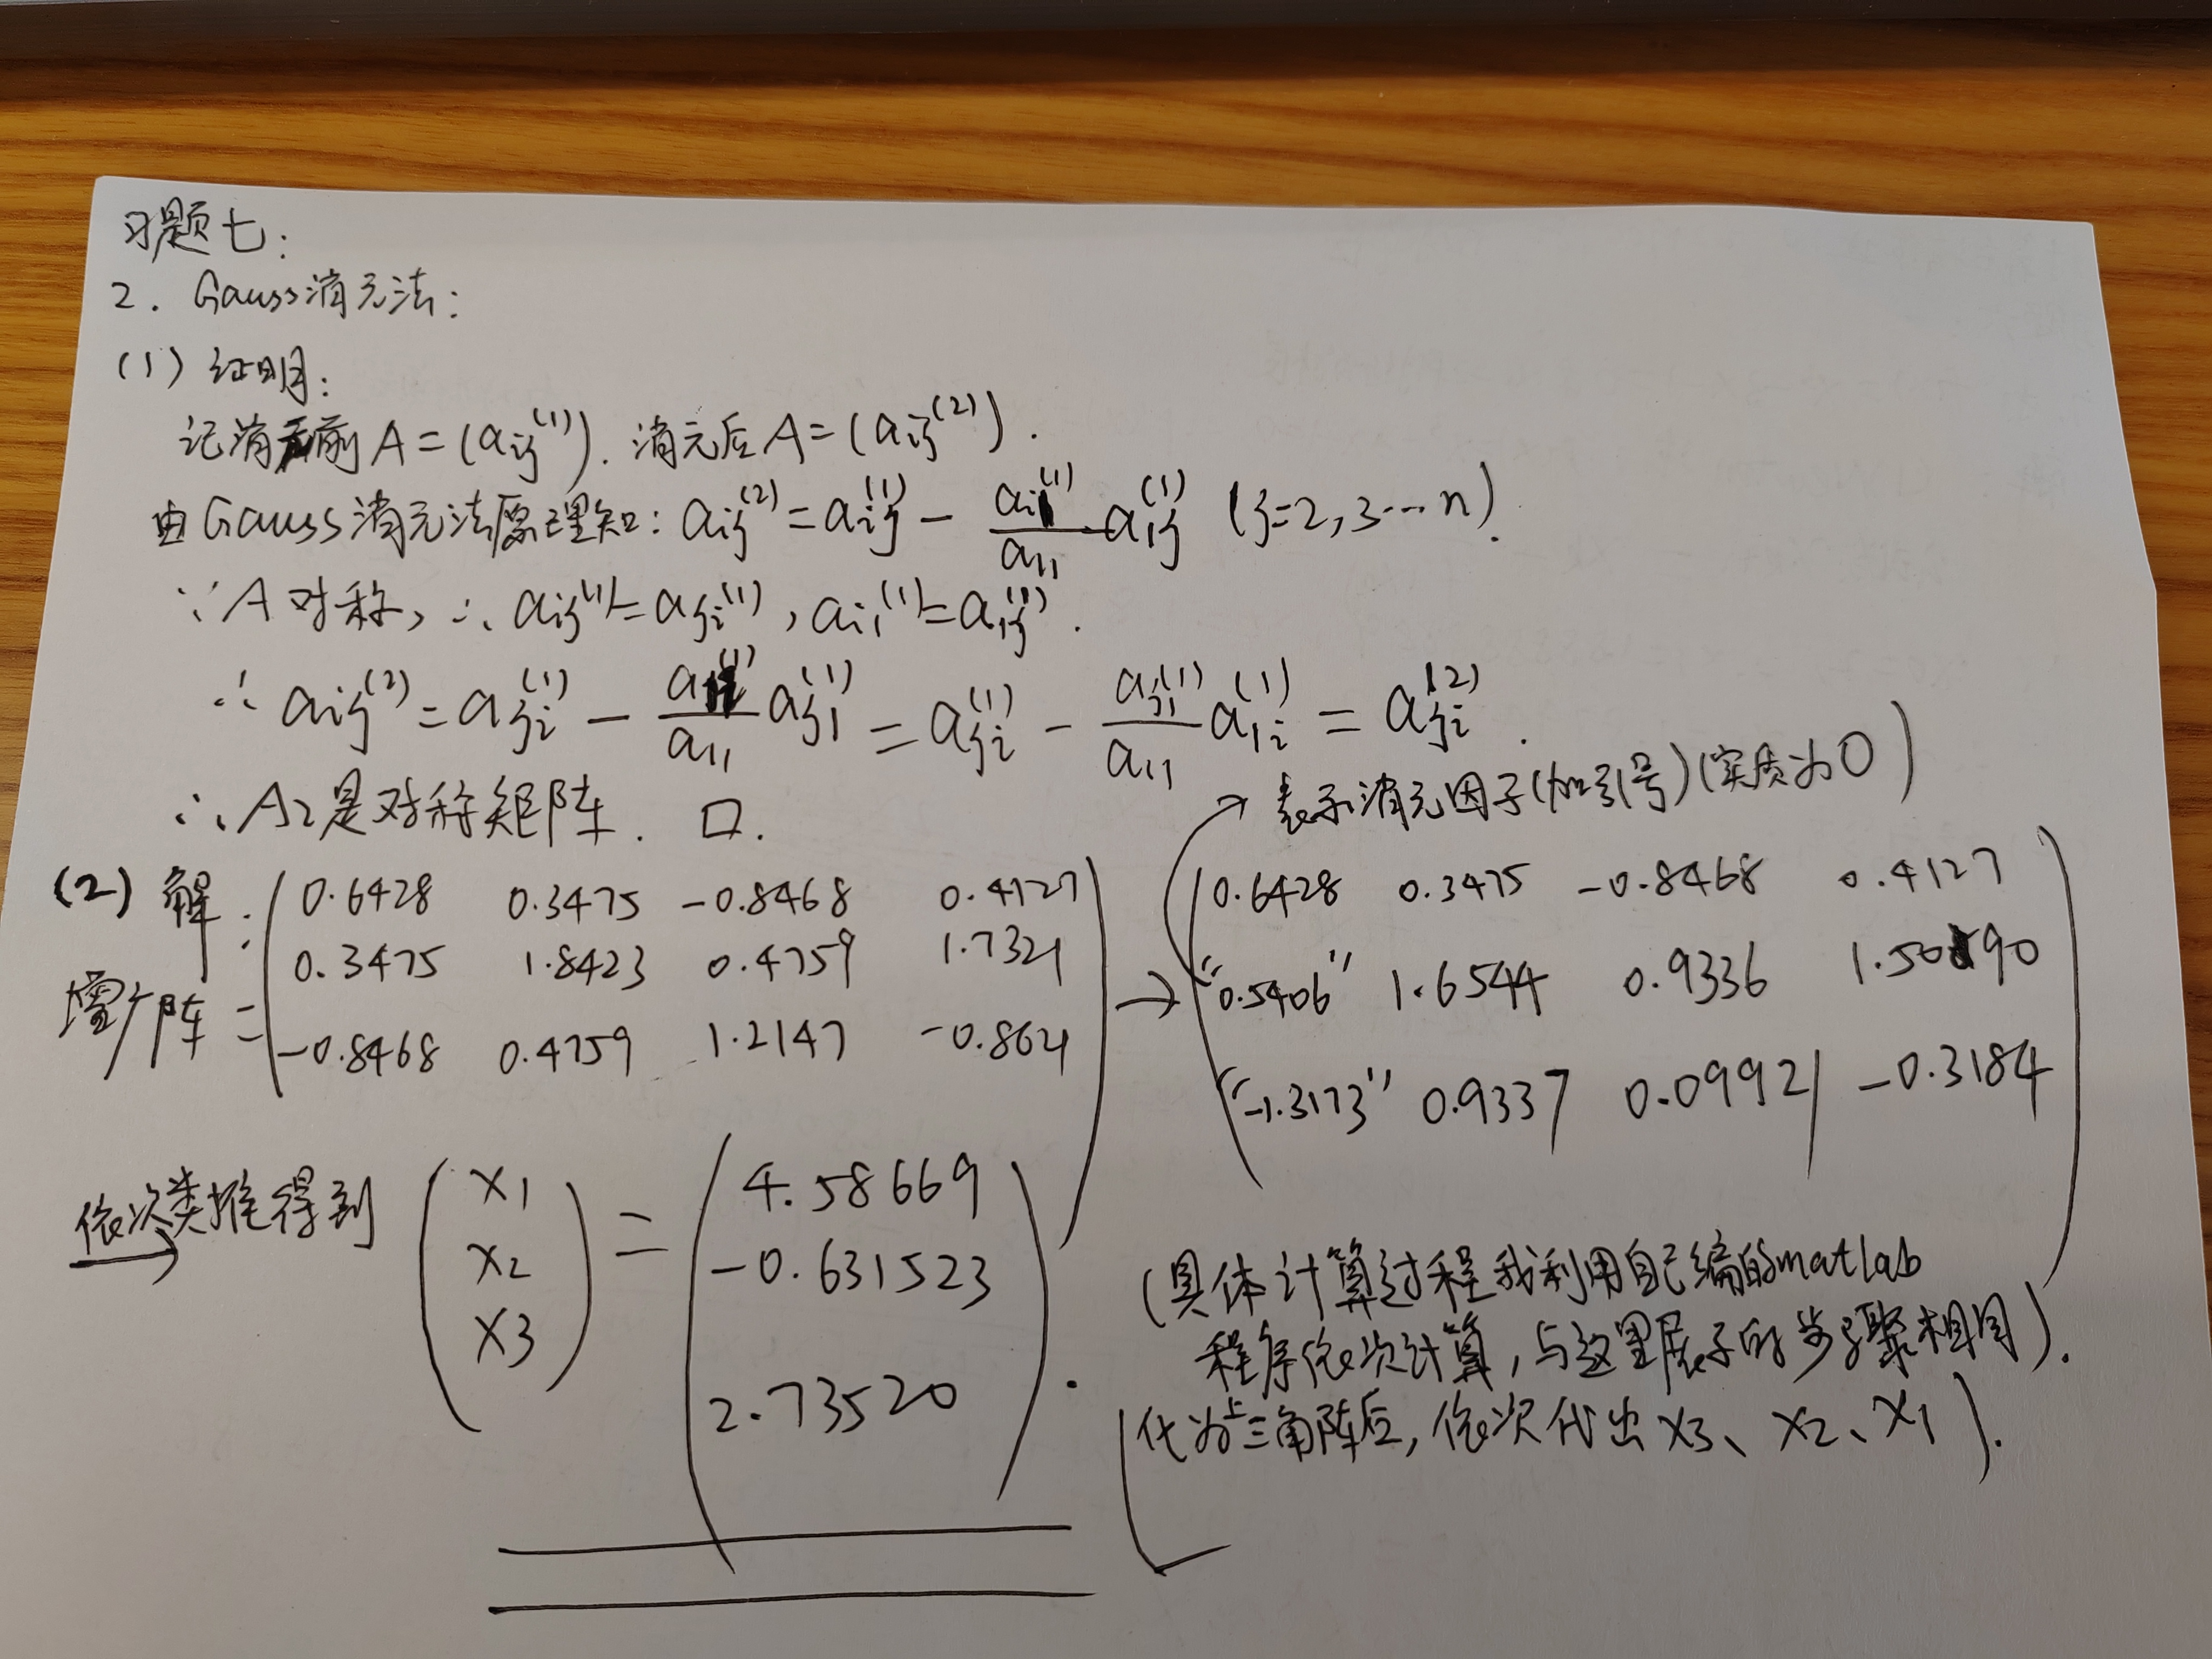 习题七:
2. Gauss消元法:
(1) 证明:
记消元前A=(aij⁽¹⁾). 消元后A=(aij⁽²⁾).
由Gauss消元法原理知: aij⁽²⁾=aij⁽¹⁾ - ai1⁽¹⁾/a11 a1j⁽¹⁾ (j=2,3…n).
∵A对称, ∴ aij⁽¹⁾=aji⁽¹⁾, ai1⁽¹⁾=a1j⁽¹⁾.
∴ aij⁽²⁾=aji⁽¹⁾ - a1i⁽¹⁾/a11 aj1⁽¹⁾ = aji⁽¹⁾ - aj1⁽¹⁾/a11 a1i⁽¹⁾ = aji⁽²⁾.
∴A2是对称矩阵. □.
表示消元因子(加引号)(实质为0)
(2) 解:
增广阵 =
0.6428 0.3475 -0.8468 0.4127
0.3475 1.8423 0.4759 1.7321
-0.8468 0.4759 1.2147 -0.8621
→
0.6428 0.3475 -0.8468 0.4127
"0.5406" 1.6544 0.9336 1.5090
"-1.3173" 0.9337 0.09921 -0.3184
依次类推得到
(x1 x2 x3) = (4.58669 -0.631523 2.73520).
(具体计算过程我利用自己编的matlab
程序依次计算, 与这里展示的步骤相同).
(化为上三角阵后, 依次代出 x3、x2、x1).